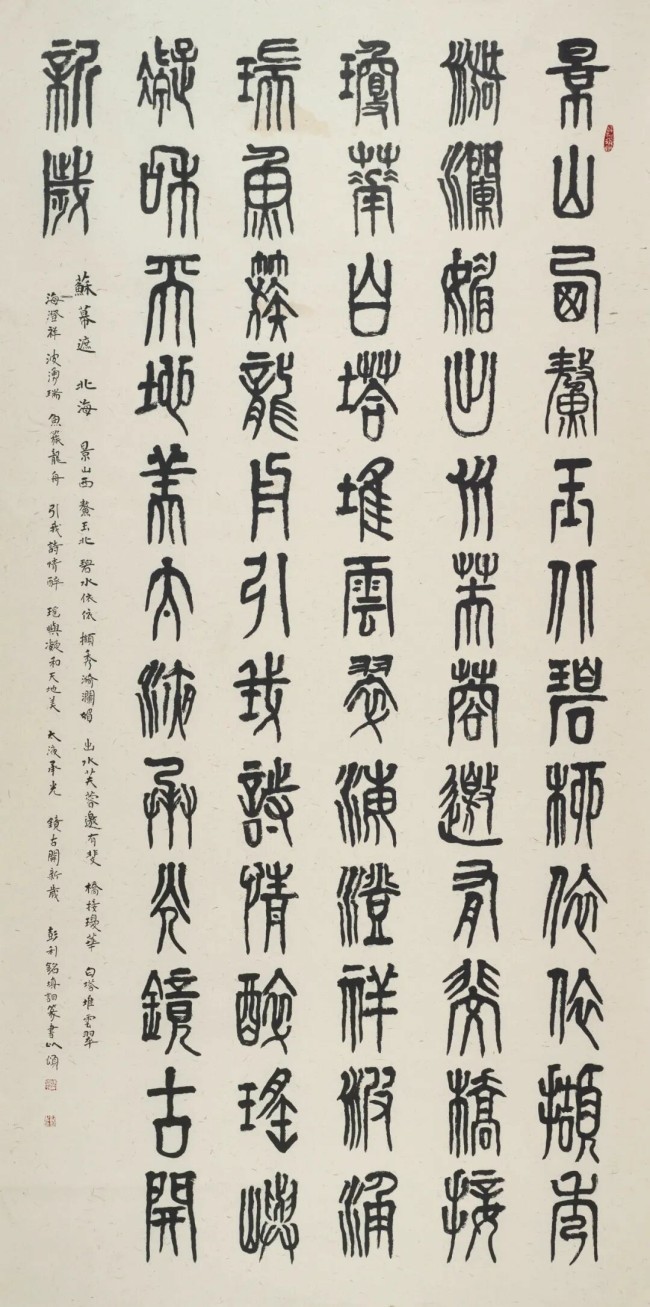 景山西鰲玉北碧柳依依擷秀
漪瀾媚出水芙蓉邀有斐橋接
瓊華白塔堆雲翠海澄祥波涌
瑞魚簇龍舟引我詩情醉瑤嶼
凝和天地美太液承光鏡古開
新歲
蘇幕遮 北海 景山西 鰲玉北 碧水依依 擷秀漪瀾媚 出水芙蓉邀有斐 橋接瓊華 白塔堆雲翠
海澄祥 波湧瑞 魚簇龍舟 引我詩情醉 瑤嶼凝和天地美 太液承光 鏡古開新歲 彭利銘填詞篆書以頌